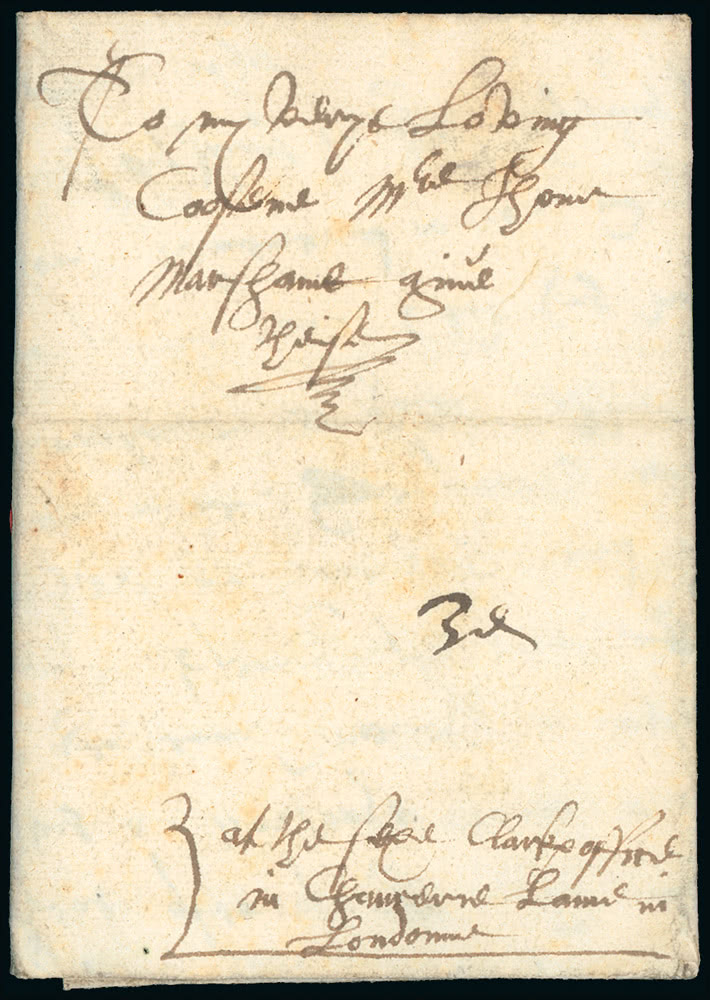 To my verye Loving
Cossene Mris Thom
Marshame give
theise
3d
at the sixe Clarke office
in Chancerie Lane in
Londonne